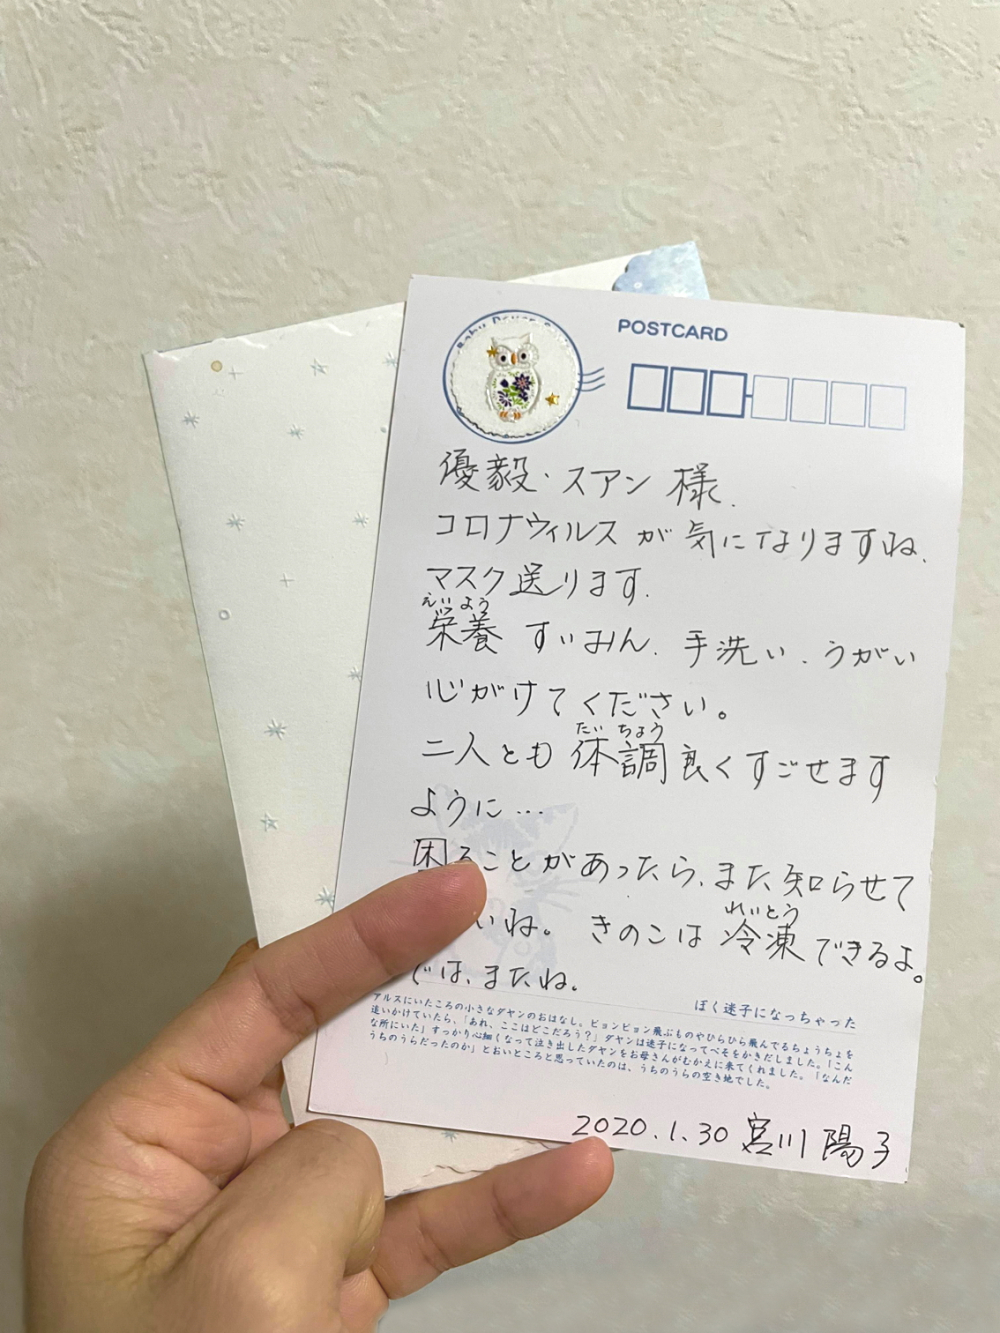 POSTCARD
優毅・スアン 様.
コロナウィルス が 気になりますね.
マスク送ります.
えいよう
栄養 すいみん. 手洗い. うがい
心がけてください。
たいちょう
二人とも 体調 良くすごせます
ように…
困ることがあったら、また知らせて
いね。 きのこは 冷凍できるよ。
れいとう
では、またね。
ぼく迷子になっちゃった
アルスにいたころの小さなダヤンのおはなし。ピョンピョン飛ぶものやひらひら飛んでるちょうちょを
追いかけていたら、「あれ、ここはどこだろう?」ダヤンは迷子になってべそをかきだしました。「こん
な所にいた」すっかり心細くなって泣き出したダヤンをお母さんがむかえに来てくれました。「なんだ
うちのうらだったのか」とおいところと思っていたのは、うちのうらの空き地でした。
2020.1.30 宮川 陽子